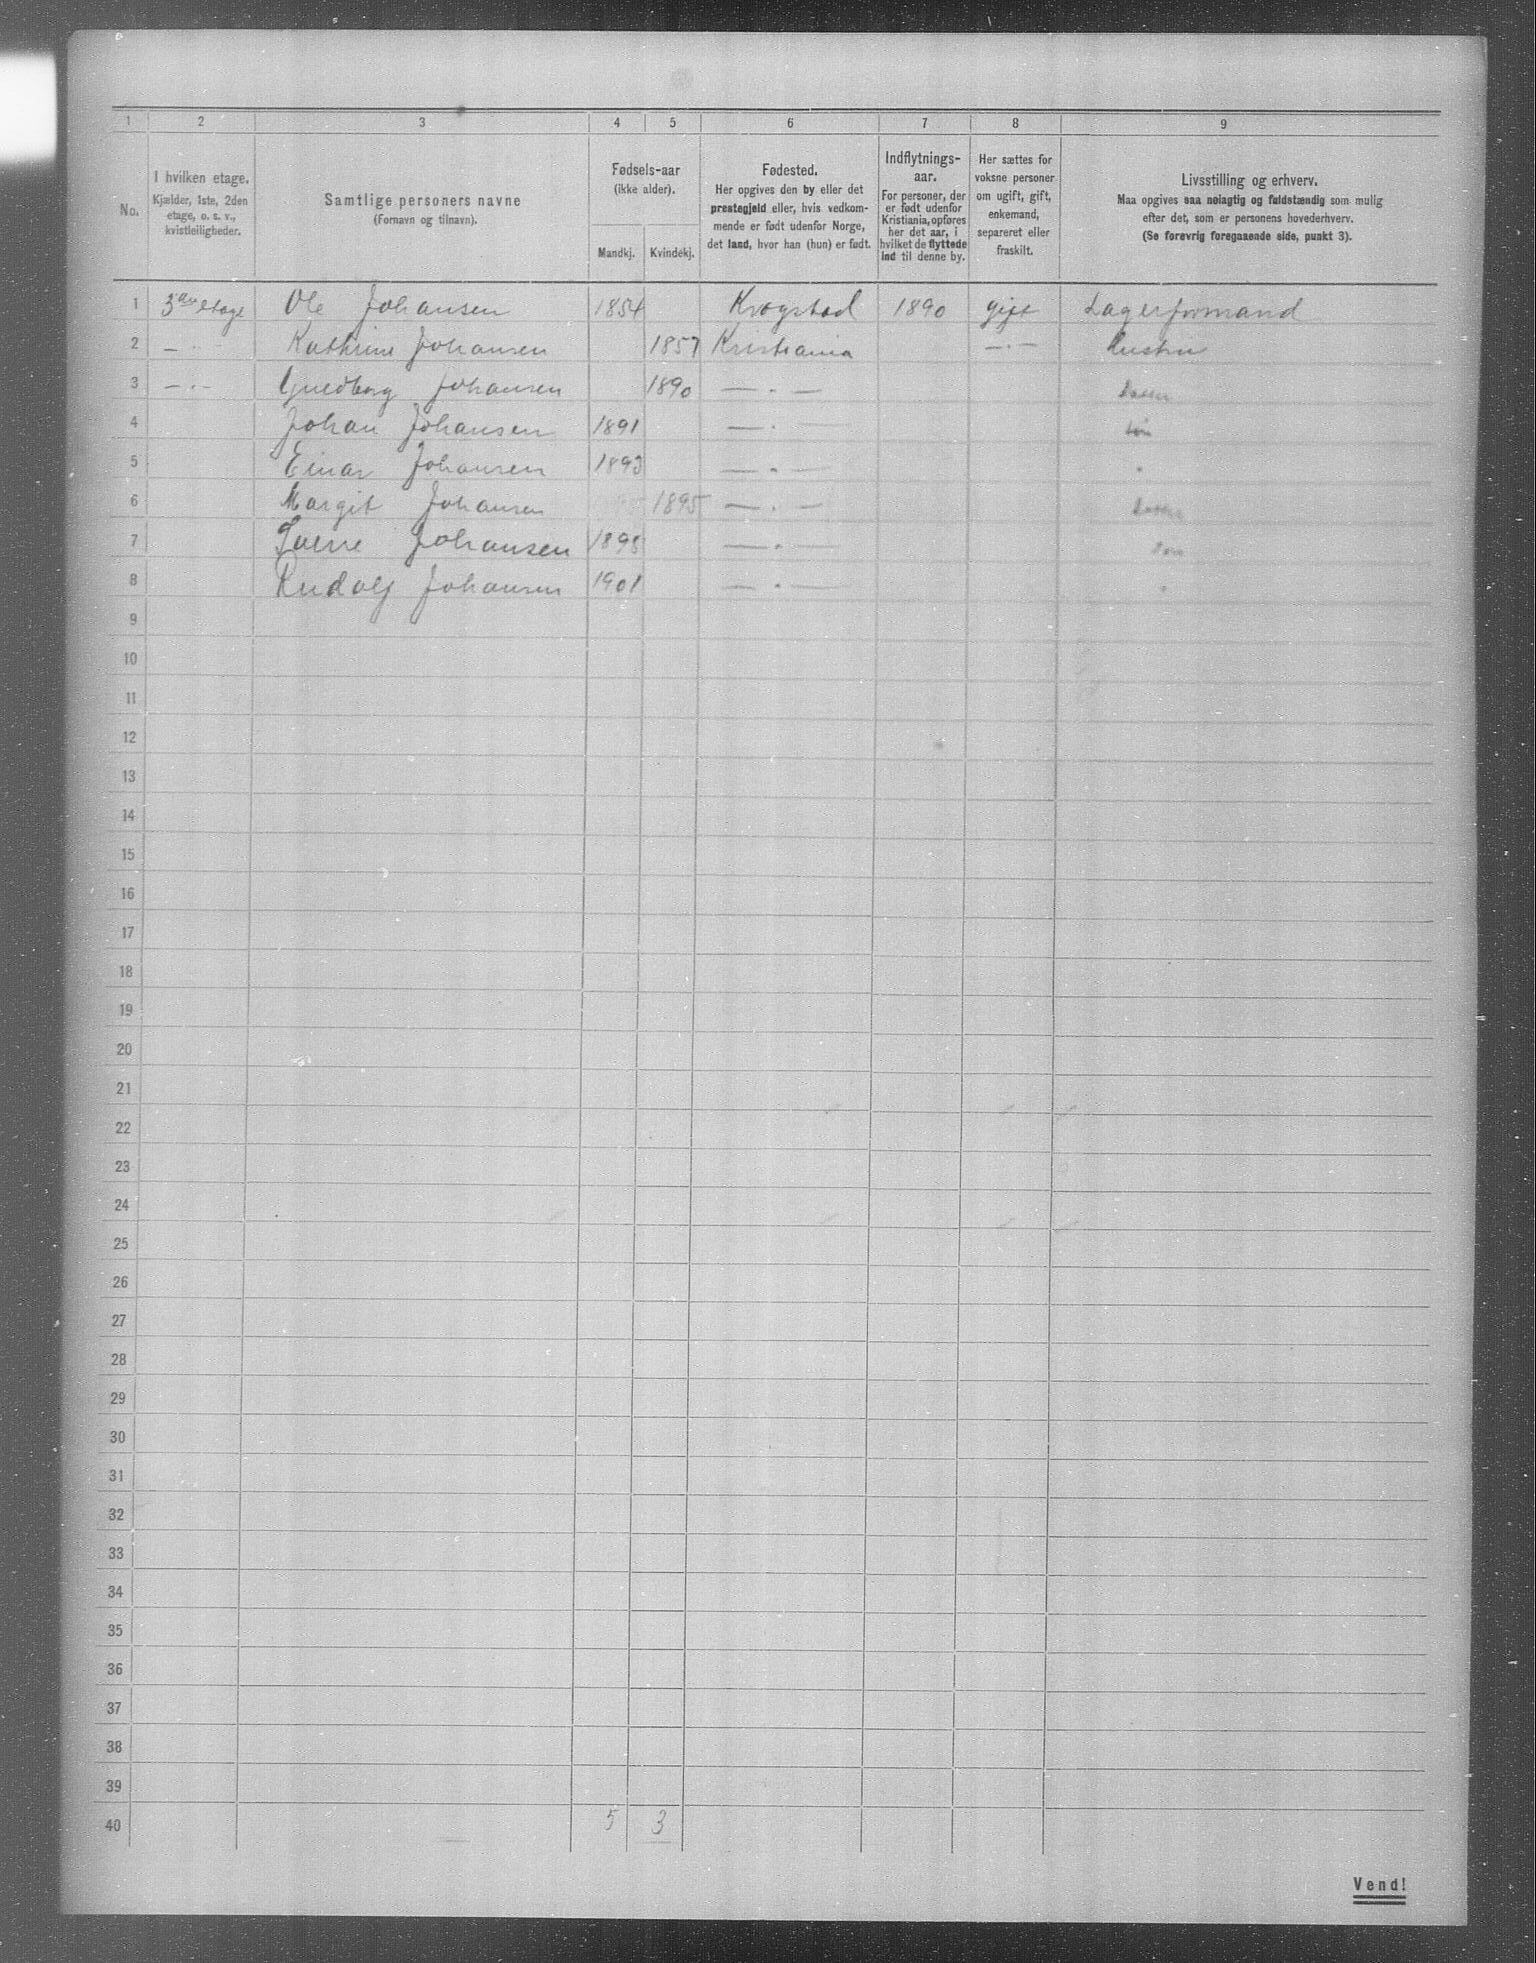 1 2 3 4 5 6 7 8 9
No.
I hvilken etage.
Kjælder, 1ste, 2den
etage, o. s. v.,
kvistleiligheder.
Samtlige personers navne
(Fornavn og tilnavn).
Fødsels-aar
(ikke alder).
Mandkj. Kvindekj.
Fødested.
Her opgives den by eller det
prestegjeld eller, hvis vedkom-
mende er født udenfor Norge,
det land, hvor han (hun) er født.
Indflytnings-
aar.
For personer, der
er født udenfor
Kristiania, opføres
her det aar, i
hvilket de flyttede
ind til denne by.
Her sættes for
voksne personer
om ugift, gift,
enkemand,
separeret eller
fraskilt.
Livsstilling og erhverv.
Maa opgives saa nøiagtig og fuldstændig som mulig
efter det, som er personens hovederhverv.
(Se forøvrig foregaaende side, punkt 3).
1 3die etage Ole Johansen 1854 Krogstad 1890 gift Lagerformand
2 — " — Kathrine Johansen 1857 Kristiania — " — Hustru
3 — " — Johansen 1890 — " — Datter
4 Johan Johansen 1891 — " — Søn
5 Einar Johansen 1893 — " — "
6 Margit Johansen 1895 — " — Datter
7 Sverre Johansen 1898 — " — Søn
8 Rudolf Johansen 1901 — " — "
9
10
11
12
13
14
15
16
17
18
19
20
21
22
23
24
25
26
27
28
29
30
31
32
33
34
35
36
37
38
39
40 5 3
Vend!